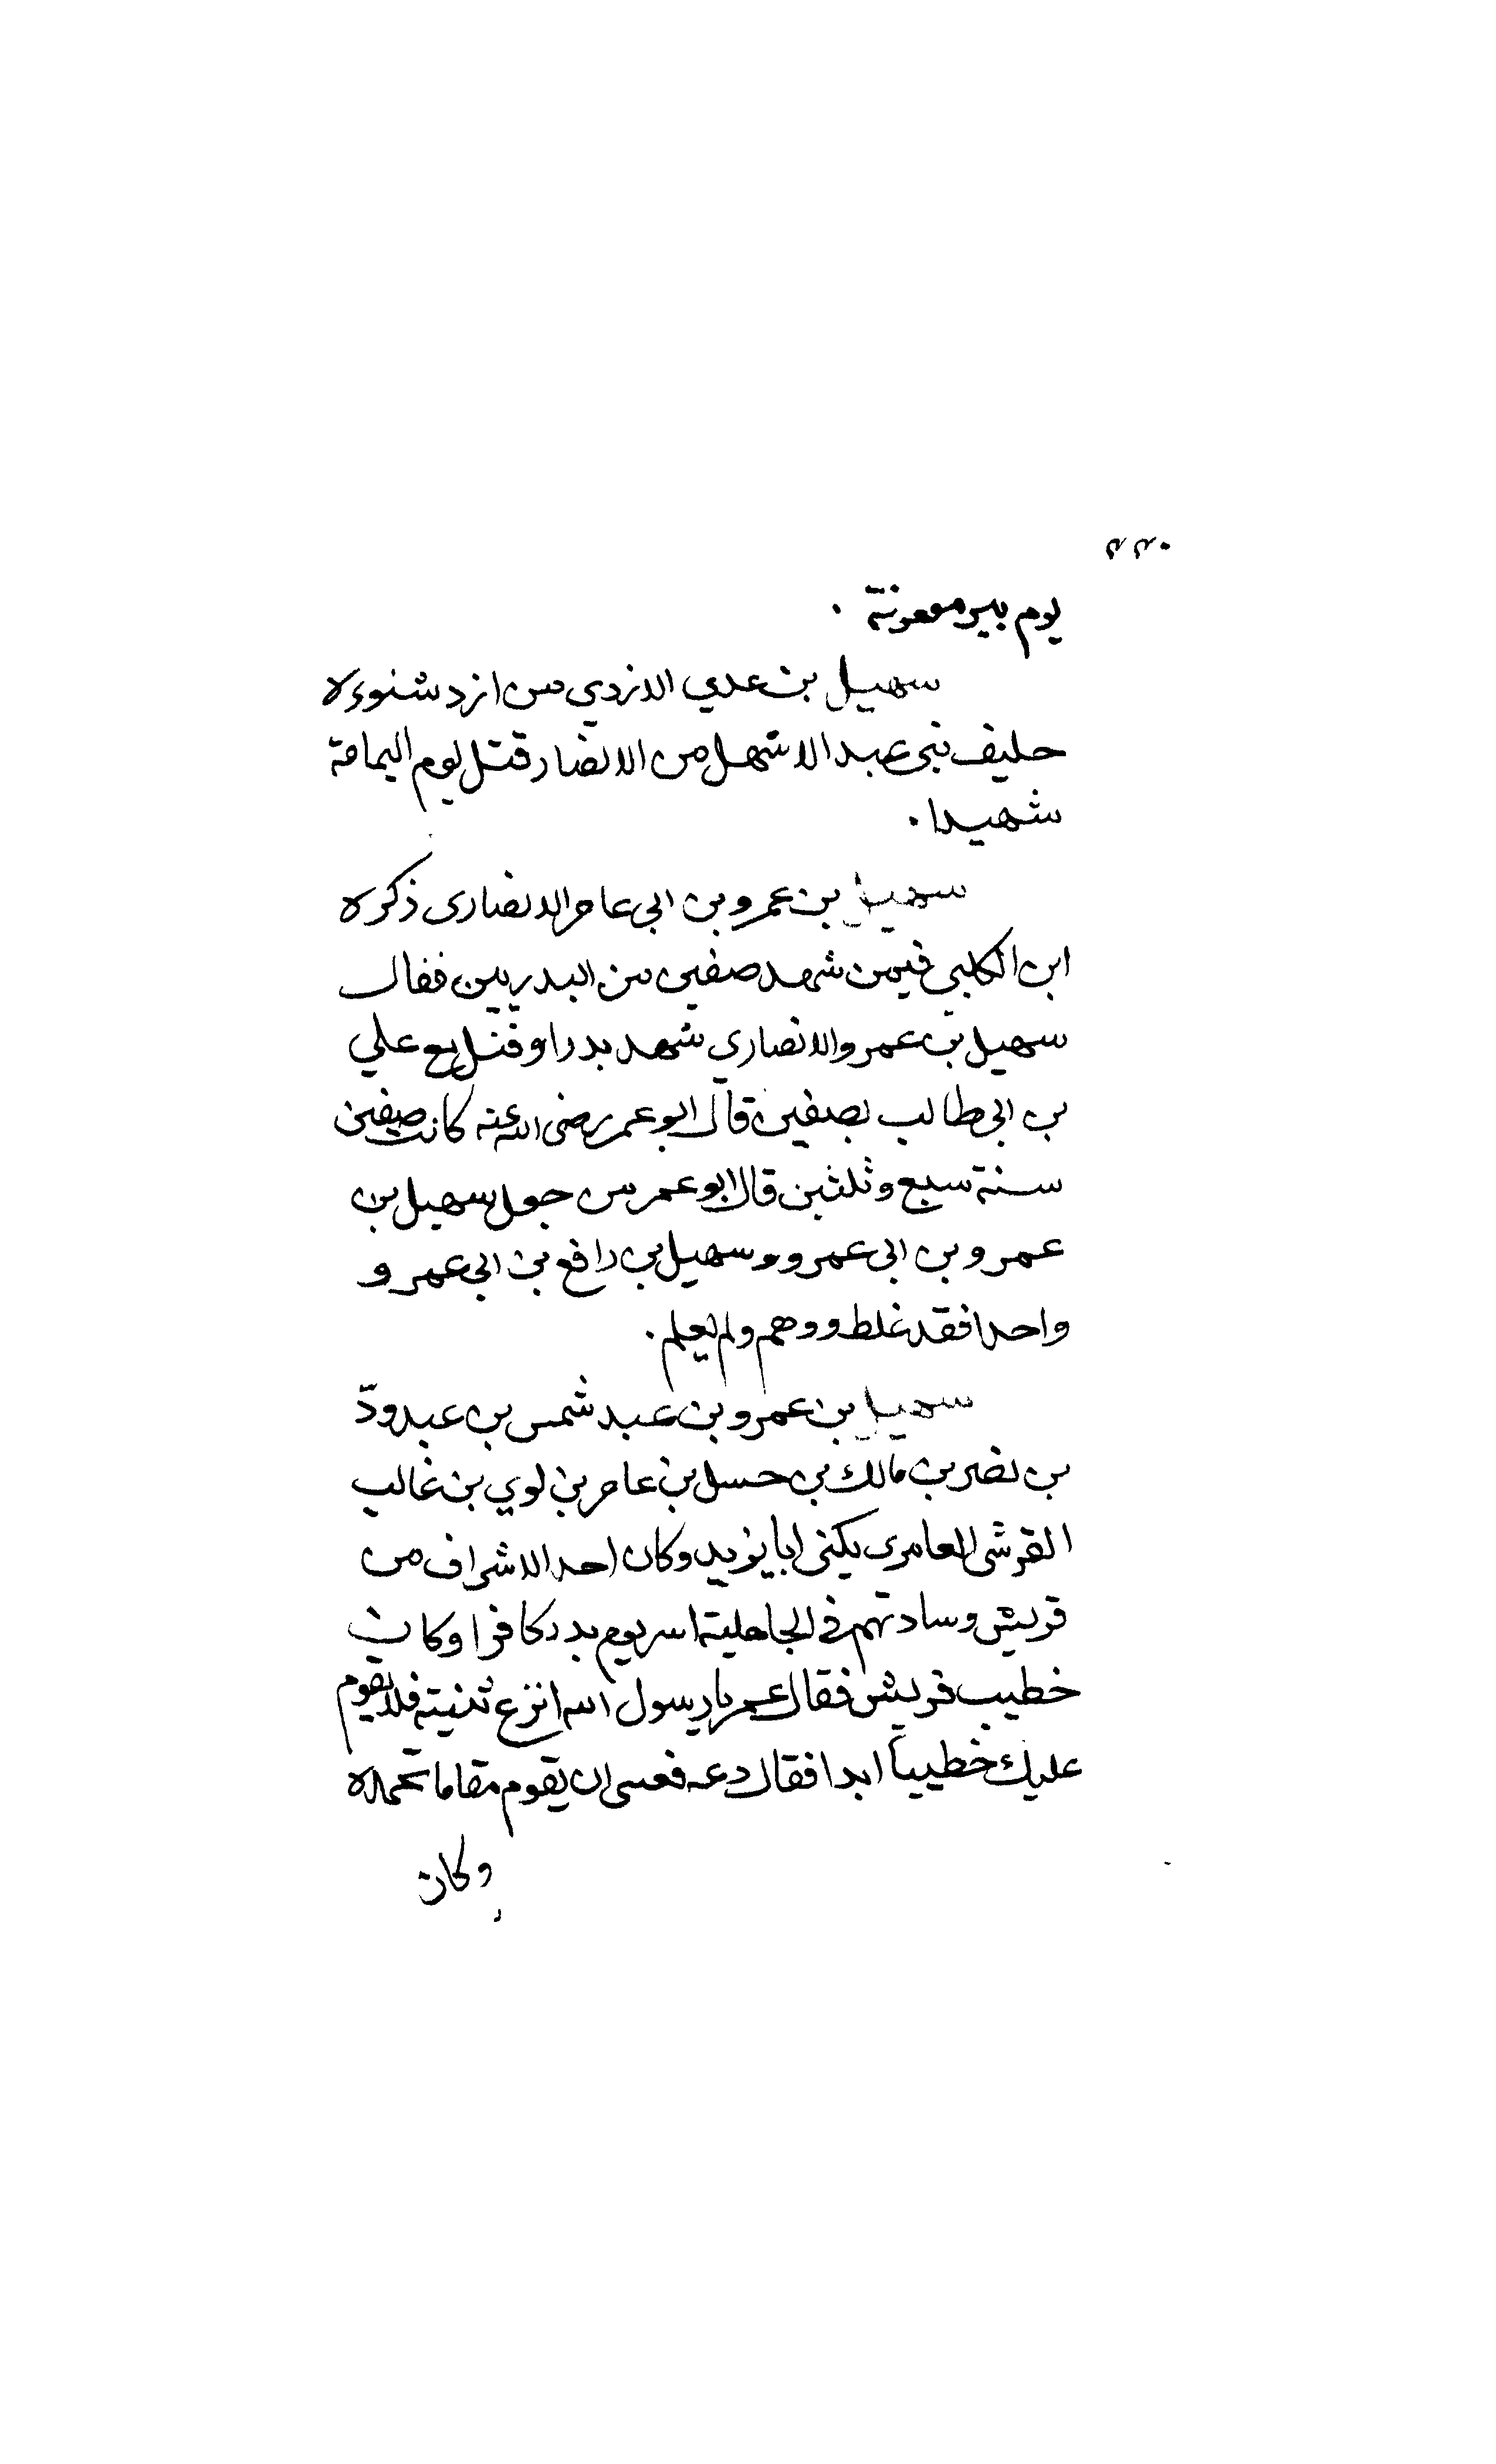 ٤٤٠
يوم بير معونة .
سهيل بن عدي الازدي من ازد شنوءة
حليف بني عبد الاشهل من الانصار قتل يوم اليمامة
شهيدا .
سهيل بن عمرو بن ابي عامر الانصارى ذكره
ابن الكلبي فيمن شهد صفين من البدريين فقال
سهيل بن عمرو الانصاري شهد بدرا وقتل مع علي
بن ابي طالب بصفين قال ابو عمر رضى الله عنه كانت صفين
سنة سبع وثلثين قال ابو عمر من جعل سهيل بن
عمرو بن ابى عمرو و سهيل بن رافع بن ابي عمرو
واحدا فقد غلط ووهم ولم يعلم .
سهيل بن عمرو بن عبد شمس بن عبد ودّ
بن نصر بن مالك بن حسل بن عامر بن لوي بن غالب
القرشى العامرى يكنى ابا يزيد وكان احد الاشراف من
قريش وسادتهم في الجاهلية اسر يوم بدر كافرا وكان
خطيب قريش فقال عمر يا رسول الله انزع ثنيته فلا يقوم
عليك خطيباً ابدا فقال دعه فعسى ان يقوم مقاما تحمده
وكان